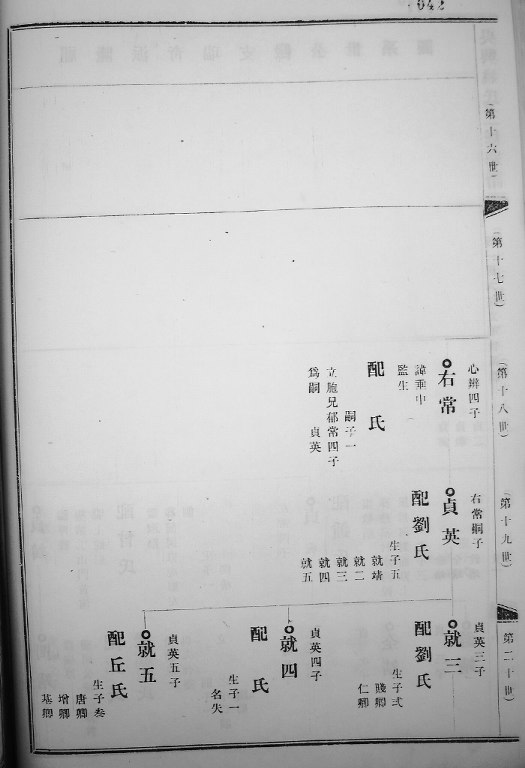 042
第十六世
第十七世
第十八世
心辨四子
右常
諱垂中
監生
配 氏
嗣子一
貞英
立胞兄郁常四子
爲嗣
第十九世
右常嗣子
貞英
配劉氏
生子五
就靖
就二
就三
就四
就五
第二十世
貞英三子
就三
配劉氏
生子弍
賤卿
仁卿
貞英四子
就四
配 氏
生子一
名失
貞英五子
就五
配丘氏
生子叁
唐卿
增卿
基卿